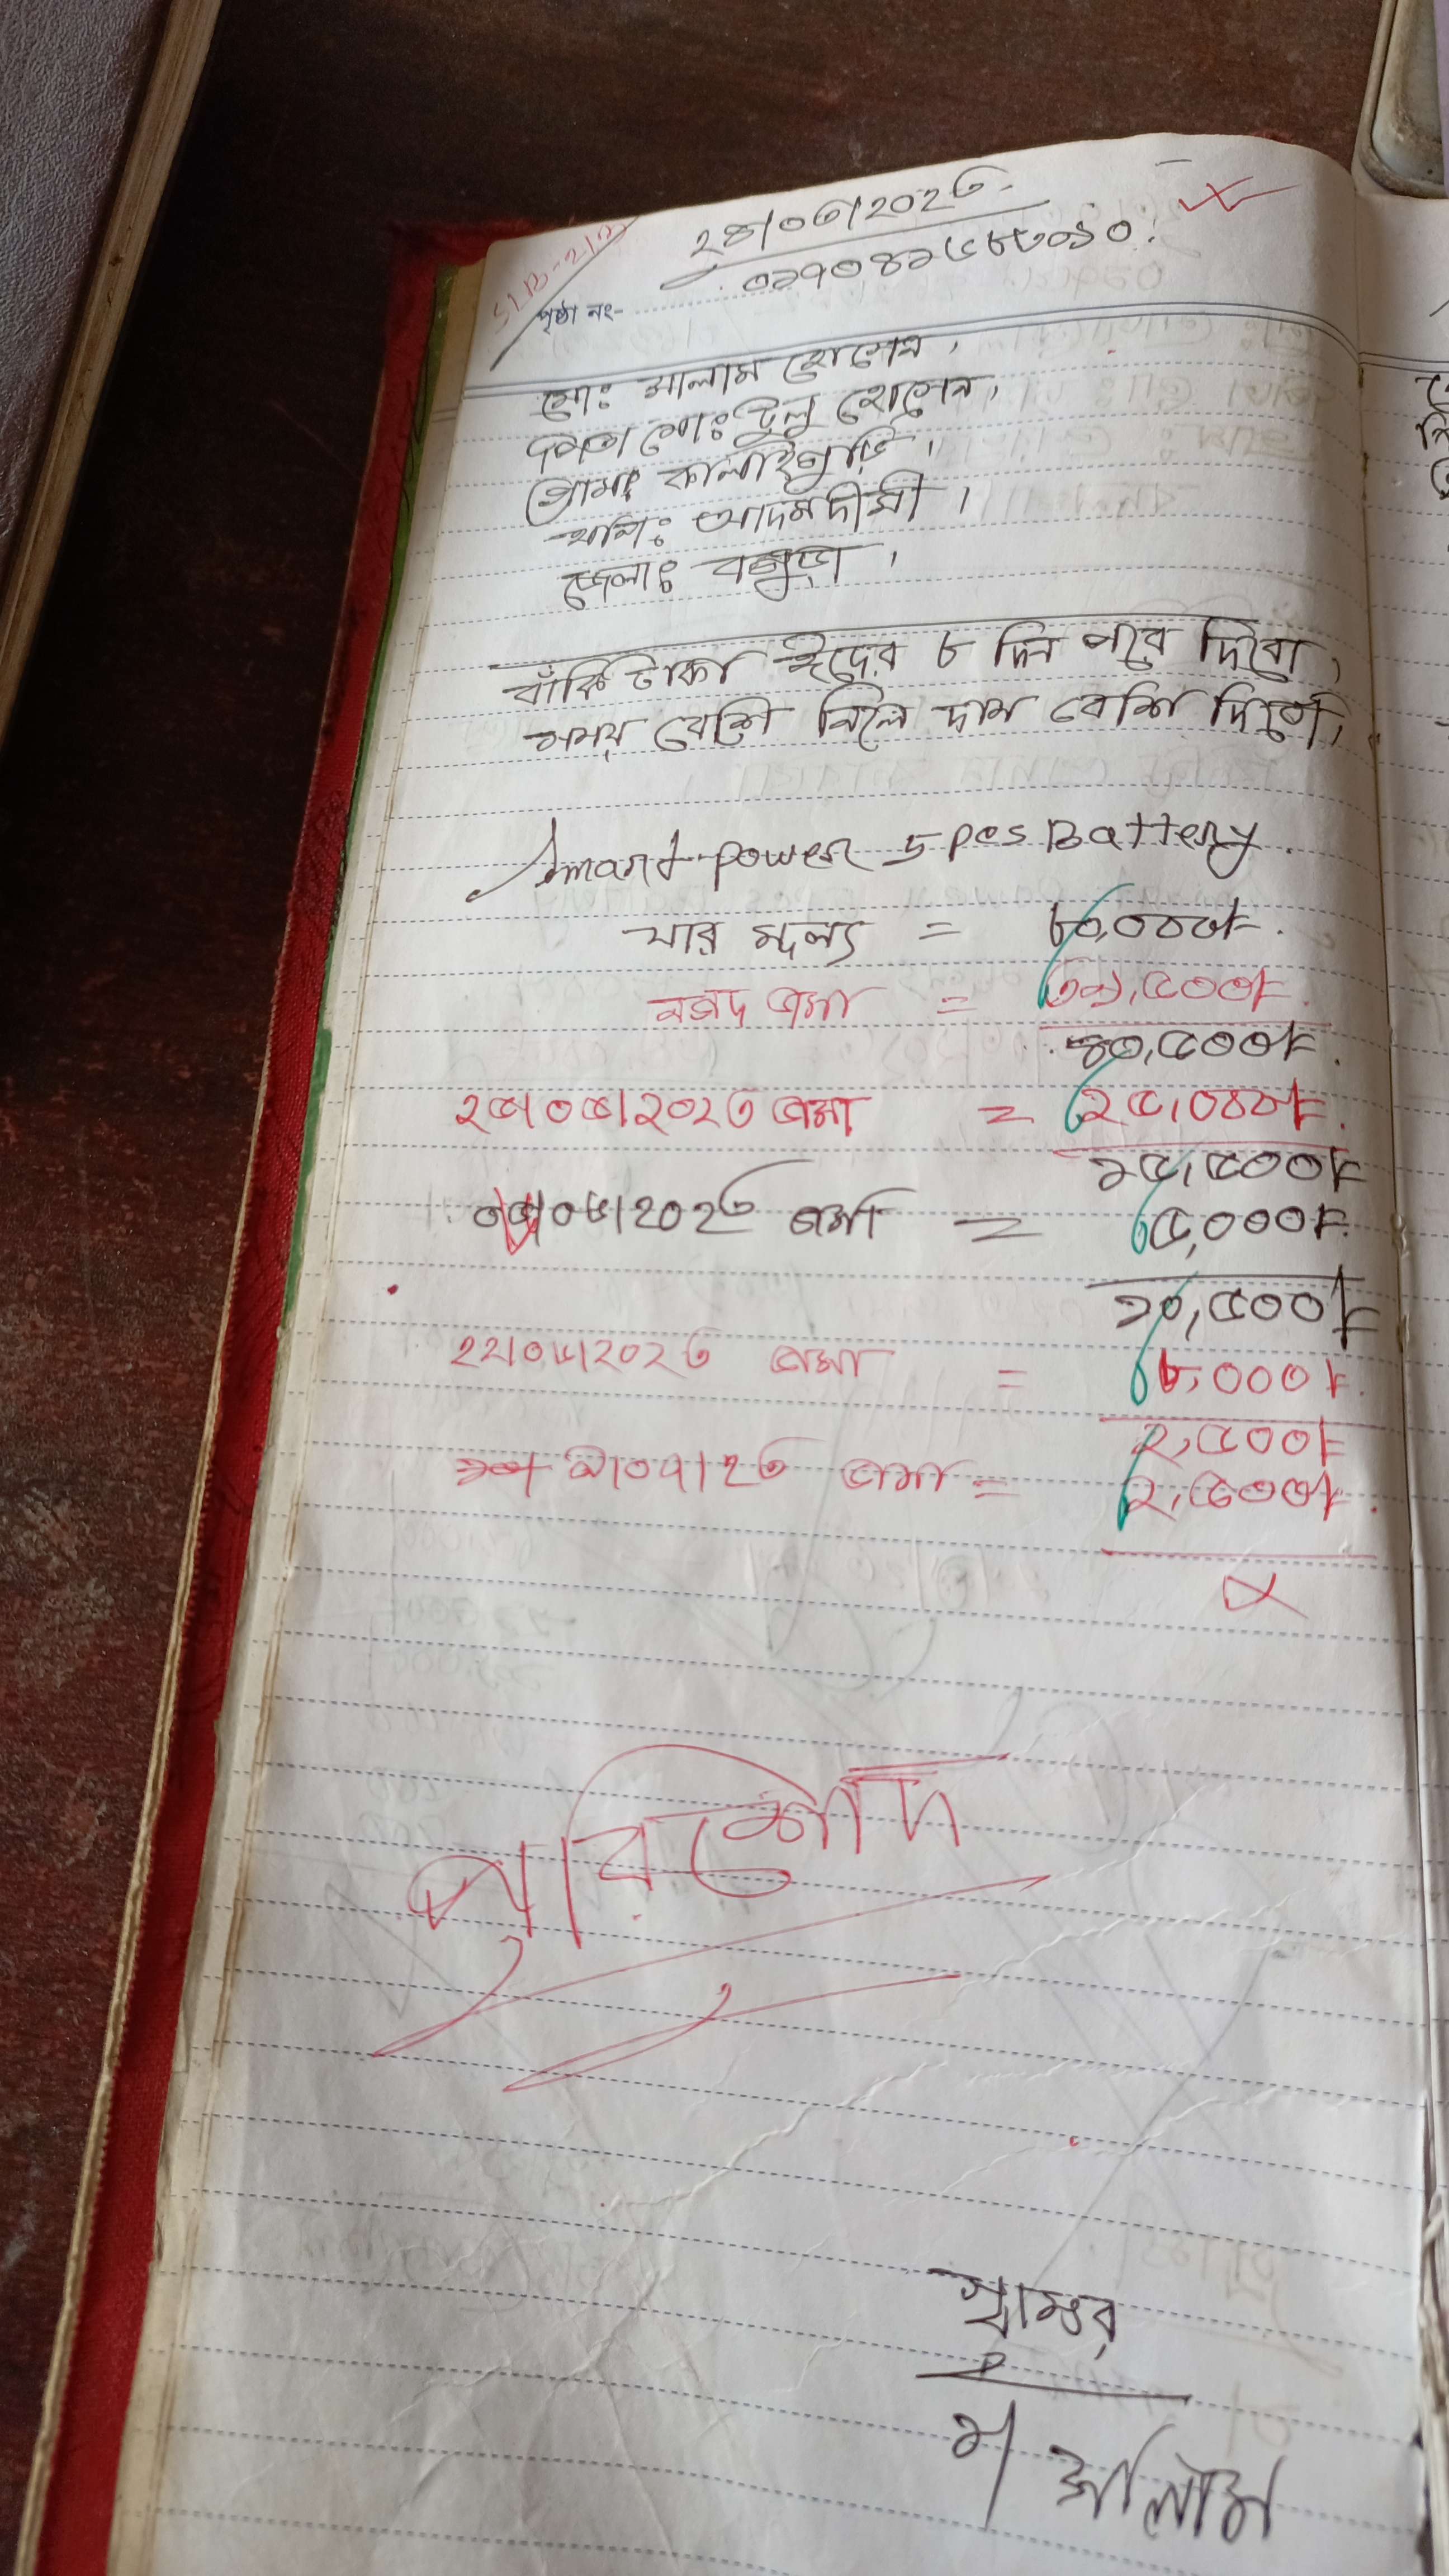 ২৪/০৩/২০২৩
০১৭০৪২৫৮৮৩৯০
পৃষ্ঠা নং-
মোঃ সালাম হোসেন,
পিতা মোঃ টুলু হোসেন,
গ্রামঃ কালাইকুড়ি,
থানাঃ আদমদীঘী,
জেলাঃ বগুড়া,
বাঁকি টাকা ঈদের ৮ দিন পরে দিবো,
সময় বেশি নিলে দাম বেশি দিবো,
Smart power 5 Pcs Battery.
যার মূল্য = ৮০,০০০/-
নগদ জমা = ৩৯,৫০০/-
৪০,৫০০/-
২৫/০৪/২০২৩ জমা = ২৫,০০০/-
১৫,৫০০/-
/০৫/২০২৩ জমা = ৫,০০০/-
১০,৫০০/-
২২/০৫/২০২৩ জমা = ৮,০০০/-
২,৫০০/-
/০৭/২৩ জমা = ২,৫০০/-
পরিশোদ
স্বাক্ষর
১/ সালাম